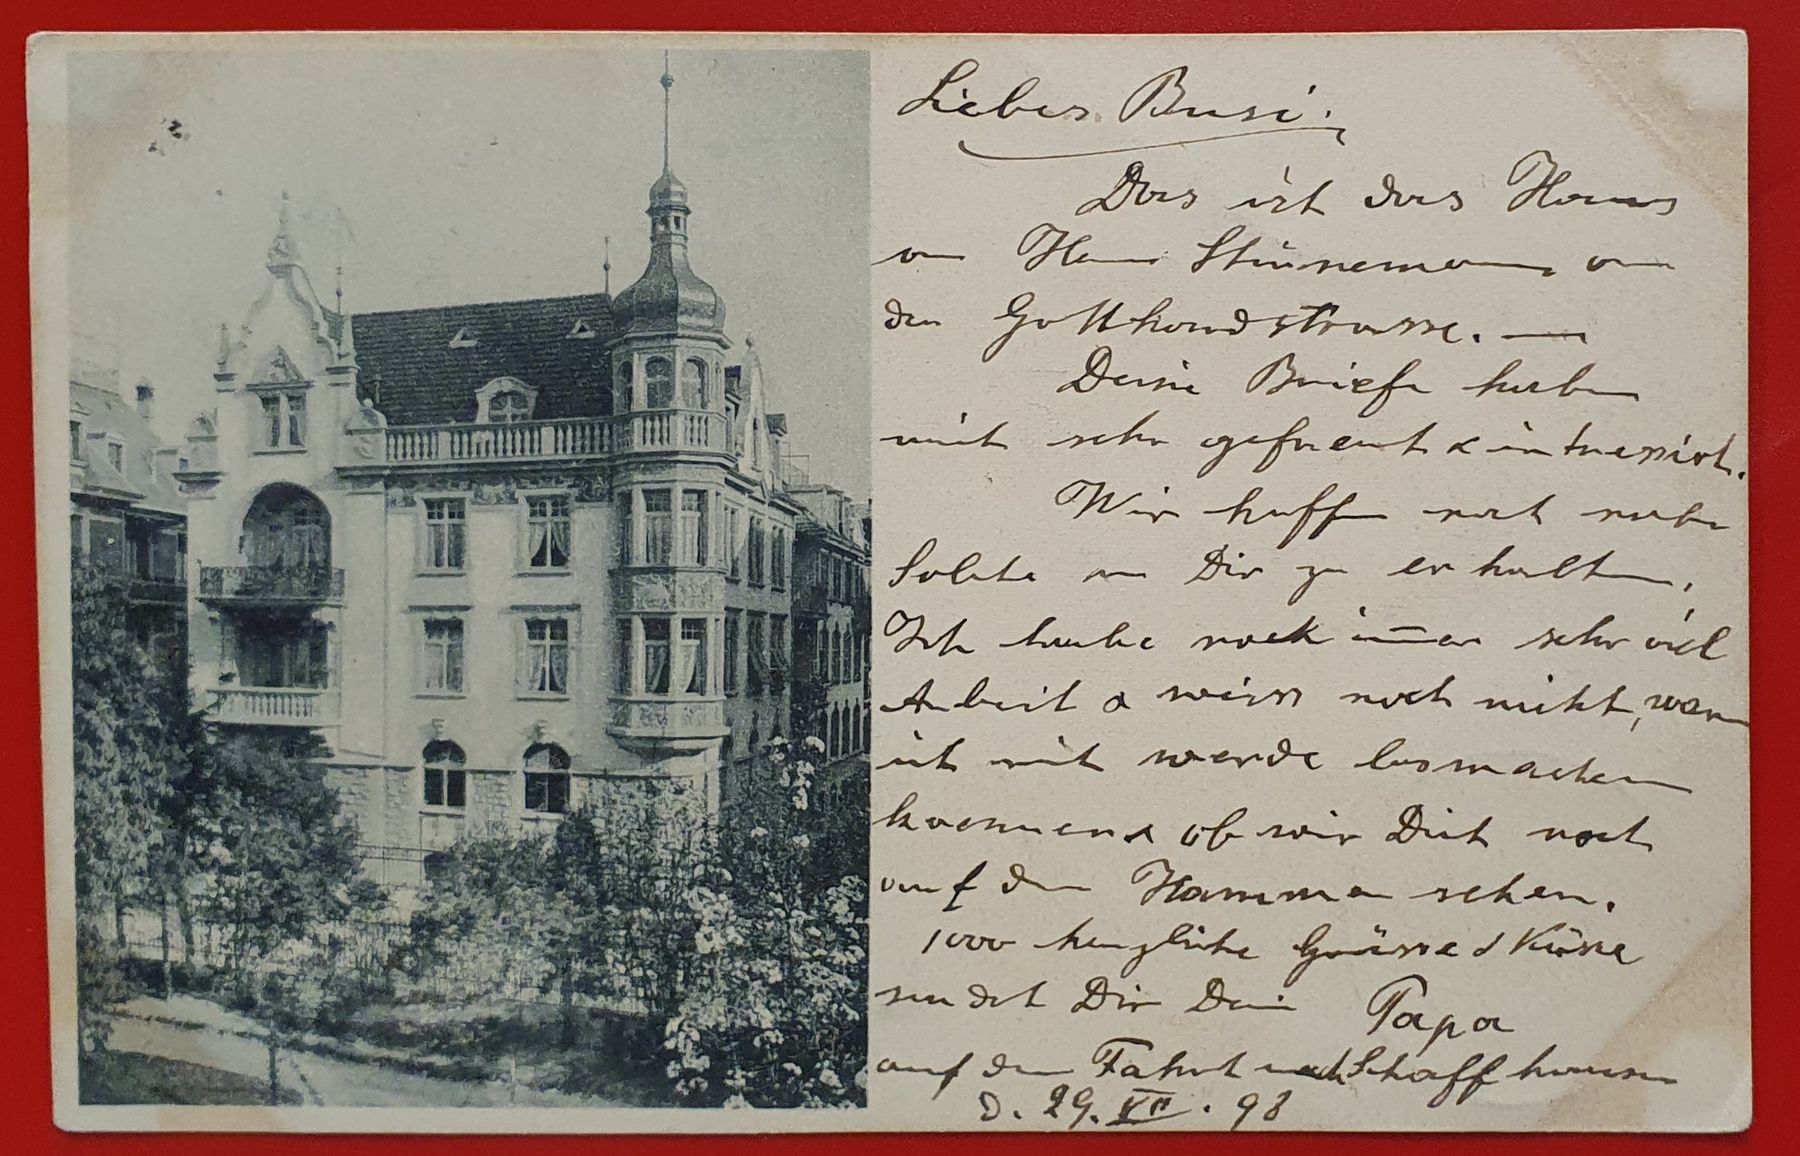 Liebes Busi!
Das ist das Haus
von Herrn Stünemann an
der Gotthardstrasse. —
Deine Briefe haben
mich sehr gefreut & intressirt.
Wir hoffen noch mehr
Solche von Dir zu erhalten.
Ich habe noch immer sehr viel
Arbeit & weiss noch nicht, wann
ich mich werde losmachen
koennen & ob wir Dich noch
auf dem Hammer sehen.
1000 herzliche Grüsse & Küsse
sendet Dir Dein Papa
auf der Fahrt nach Schaffhausen
d. 29. VII. 98